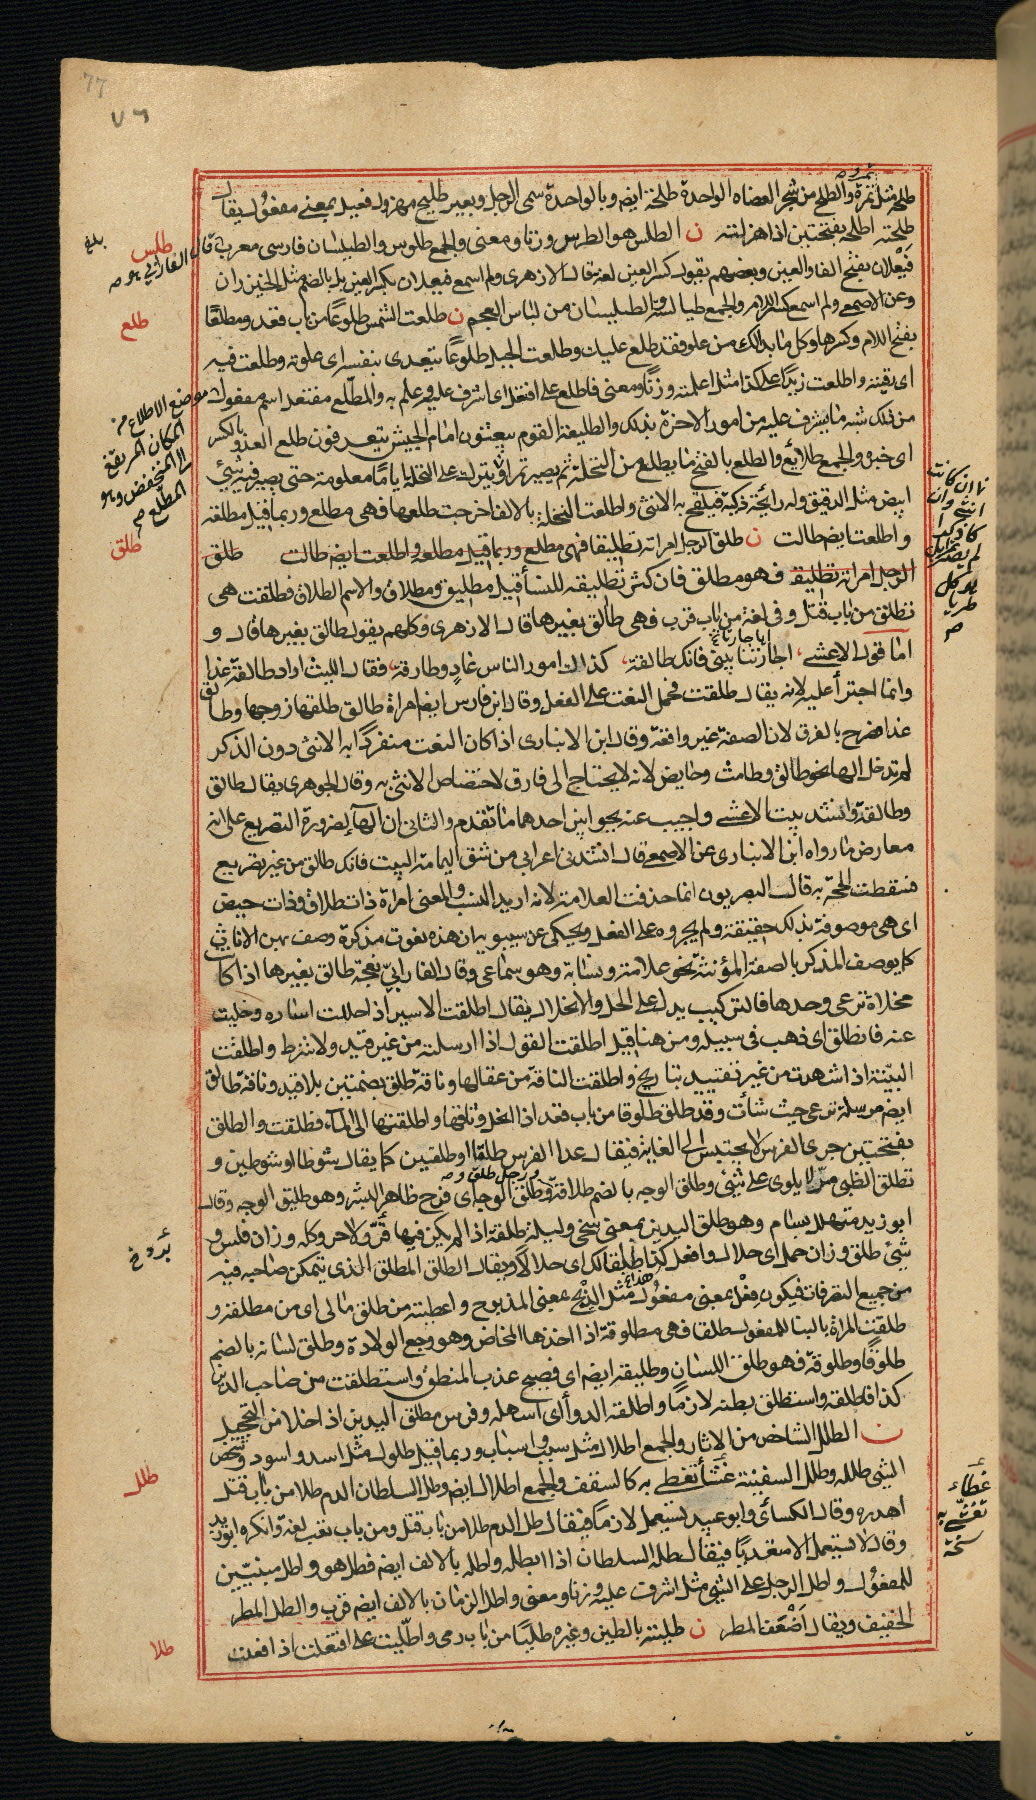 ٧٦
طلحة مثل تمرة والطلح من شجر العضاه الواحدة طلحة ايضا وبالواحدة سمى الرجل وبعير طليح مهزول فعيل بمعنى مفعول يقال
طلحته اطلحه بفتحتين اذا هزلته ن الطلس هو الطرس وزنا ومعنى والجمع طلوس والطيلسان فارسى معرب قال الفارابى هو
فيعلان بفتح الفا والعين وبعضهم يقول كسر العين لغة قال الازهرى ولم اسمع فيعلان بكسر العين بل بالضم مثل الخيزران
وعن الاصمعى ولم اسمع كسر اللام والجمع طيالسة والطيلسان من لباس العجم ن طلعت الشمس طلوعا من باب قعد ومطلعا
بفتح اللام وكسرها وكل ما بدا لك من علو فقد طلع عليك وطلعت الجبل طلوعا يتعدى بنفسه اى علوته وطلعت فيه
اى رقيته واطلعت زيدا على كذا مثل اعلمته وزنا ومعنى فاطلع على افتعل اى اشرف عليه وعلم به والمطلع مفتعل اسم مفعول
من ذلك شبه ما يشرف عليه من امور الاخرة بذلك والطليعة القوم يبعثون امام الجيش يتعرفون طلع العدو بالكسر
اى خبره والجمع طلايع والطلع بالفتح ما يطلع من النخلة ثم يصير تمرا ويترك على النخلة اياما معلومة حتى يصير فيه شئ
ابيض مثل الدقيق وله رائحة ذكية فيلقح به الانثى واطلعت النخلة بالالف اخرجت طلعها فهى مطلع وربما قيل مطلعة
واطلعت ايضا طالت ن طلق الرجل امراته تطليقا فهى مطلع وربما قيل مطلعة واطلعت ايضا طالت طلق
الرجل امراته تطليقا فهو مطلق فان كثر تطليقه للنسا قيل مطليق ومطلاق والاسم الطلاق فطلقت هى
تطلق من باب قتل وفى لغة من باب قرب فهى طالق بغير ها قال الازهرى وكلهم يقول طالق بغير ها قال و
اما قول الاعشى ايا جارتا بينى فانك طالقة كذاك امور الناس غاد وطارقة فقال الليث اراد طالقة غدا
وانما اجترأ عليه لانه يقال طلقت فحمل النعت على الفعل وقال ابن فارس ايضا امراة طالق طلقها زوجها وطالقة
غدا فصرح بالفرق لان الصفة غير واقعة وقال ابن الانبارى اذا كان النعت منفردا به الانثى دون الذكر
لم تدخل الها نحو طالق وطامث وحايض لانه لا يحتاج الى فارق لاختصاص الانثى به وقال الجوهرى يقال طالق
وطالقة وانشد بيت الاعشى واجيب عنه بجوابين احدهما ما تقدم والثانى ان الهاء لضرورة التصريع على انه
معارض بما رواه ابن الانبارى عن الاصمعى قال انشدنى اعرابى من شق اليمامة البيت فانك طالق من غير تصريع
فتسقط الحجة به قالت البصريون انما حذفت العلامة لانه اريد النسب والمعنى امراة ذات طلاق وذات حيض
اى هى موصوفة بذلك حقيقة ولم يجروه على الفعل ويحكى عن سيبويه ان هذه نعوت مذكرة وصف بهن الاناث
كما يوصف المذكر بالصفة المؤنثة نحو علامة ونسابة وهو سماعى وقال الفارابى نعجة طالق بغير ها اذا كانت
مخلاة ترعى وحدها فالتركيب يدل على الحل والانحلال يقال اطلقت الاسير اذا حللت اساره وخليت
عنه فانطلق اى ذهب فى سبيله ومن هنا قيل اطلقت القول اذا ارسلته من غير قيد ولا شرط واطلقت
البينة اذا شهدت من غير تقييد بتاريخ واطلقت الناقة من عقالها وناقة طلق بضمتين بلا قيد وناقة طالق
ايضا مرسلة ترعى حيث شات وقد طلق طلوقا من باب قعد اذا انحل وثاقها واطلقتها الى الماء فطلقت والطلق
بفتحتين جرى الفرس لا يحتبس الى الغاية فيقال عدا الفرس طلقا او طلقين كما يقال شوطا او شوطين و
تطلق الظبى مر لا يلوى على شئ وطلق الوجه بالضم طلاقة ورجل طلق الوجه اى فرح ظاهر البشر وهو طليق الوجه وقال
ابو زيد متهلل بسام وهو طلق اليدين بمعنى سخى وليلة طلقة اذا لم يكن فيها قر ولا حر وكله وزان فلس و
شئ طلق وزان حمل اى حلال وافعل كذا طلقا لك اى حلالا ويقال الطلق المطلق الذى يتمكن صاحبه فيه
من جميع التصرفات فيكون فعل بمعنى مفعول مثل الذبح بمعنى المذبوح واعطيته من طلق مالى اى من مطلقه و
طلقت المراة بالبنا للمفعول طلقا فهى مطلوقة اذا اخذها المخاض وهو وجع الولادة وطلق لسانه بالضم
طلوقا وطلوقة فهو طلق اللسان وطليقه ايضا اى فصيح عذب المنطق واستطلقت من صاحب الدين
كذا فاطلقه واستطلق بطنه لازما واطلقه الدوا اى اسهله وفرس مطلق اليدين اذا خلا من التحجيل
ن الطلل الشاخص من الاثار والجمع اطلال مثل سبب واسباب وربما قيل طلول مثل اسد واسود وشخص
الشئ طلله وطلل السفينة غشا تغطى به كالسقف والجمع اطلال ايضا وطل السلطان الدم طلا من باب قتل
اهدره وقال الكسائى وابو عبيد يستعمل لازما فيقال طل الدم طلا من باب قتل ومن باب تعب لغة وانكره ابو زيد
وقال لا يستعمل الا متعديا فيقال طله السلطان اذا ابطله واطله بالالف ايضا فطل هو واطل مبنيين
للمفعول واطل الرجل على الشئ مثل اشرف عليه وزنا ومعنى واطل الزمان بالالف ايضا قرب والطل المطر
الخفيف ويقال اضعف المطر ن طليته بالطين وغيره طليا من باب رمى واطليت على افتعلت اذا فعلت
بلغ
طلس
طلع
موضع الاطلاع من
المكان المرتفع
الى المنخفض وهو
المطلع
طلق
طلل
طلا
ان كانت
انثى وان
كان ذكرا
لم يصر تمرا بل
يؤكل
طريا
غطاء
تغشى به
نسخة